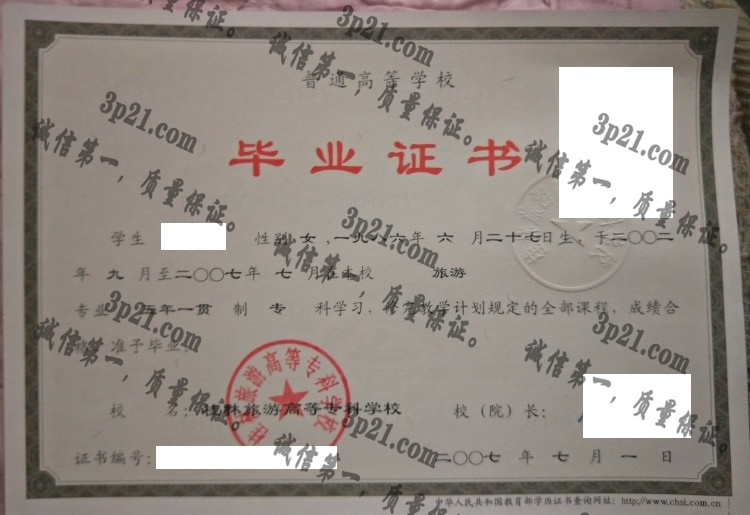 普通高等学校
毕业证书
学生 性别 女 ,一九八六年 六 月二十七日生, 于二〇〇二
年 九 月至二〇〇七年 七 月在本校 旅游
专业 五年一贯 制 专 科学习, 修完教学计划规定的全部课程, 成绩合
格, 准予毕业。
校 名: 桂林旅游高等专科学校 校(院)长:
桂林旅游高等专科学校
证书编号: 二〇〇七 年 七 月 一 日
中华人民共和国教育部学历证书查询网址: http://www.chsi.com.cn
3p21.com
诚信第一,质量保证。
3p21.com
诚信第一,质量保证。
3p21.com
诚信第一,质量保证。
3p21.com
诚信第一,质量保证。
3p21.com
诚信第一,质量保证。
3p21.com
诚信第一,质量保证。
3p21.com
诚信第一,质量保证。
3p21.com
诚信第一,质量保证。